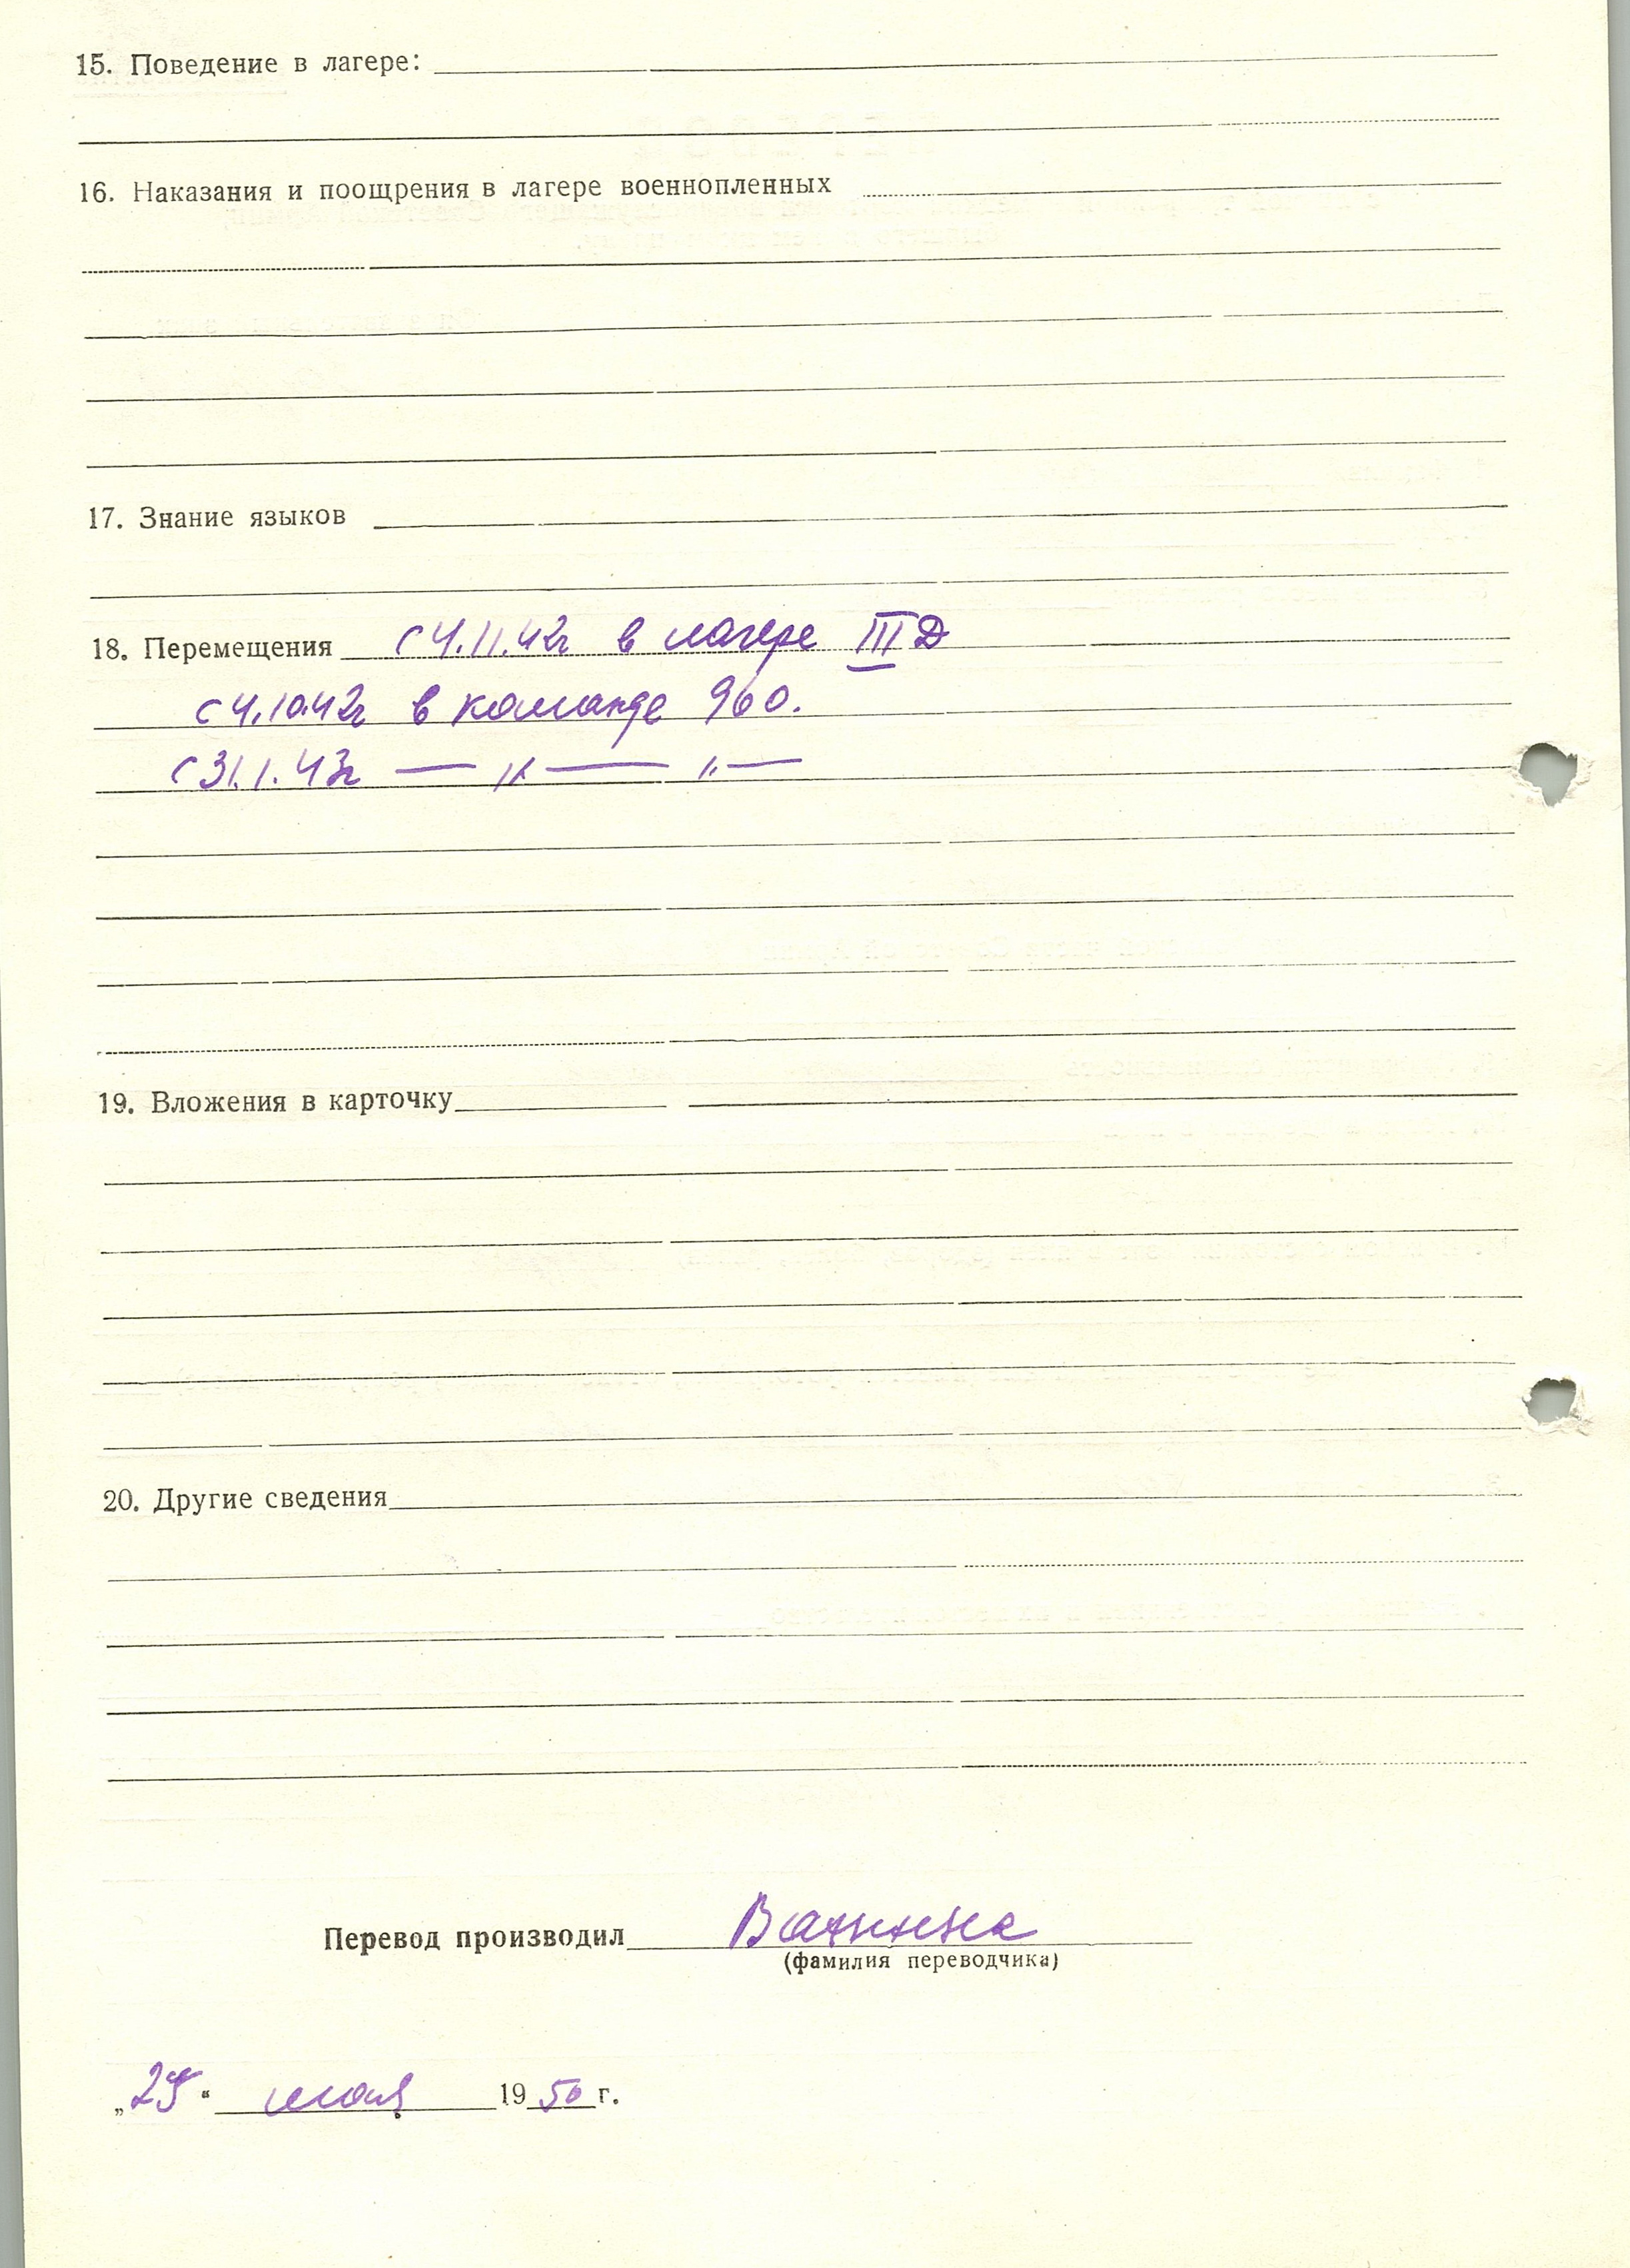 15. Поведение в лагере:
16. Наказания и поощрения в лагере военнопленных
17. Знание языков
18. Перемещения с 4.11.42г в лагере III Д
с 4.10.42г в команде 960.
с 31.1.43г — „ — „ —
19. Вложения в карточку
20. Другие сведения
Перевод производил Ванина
(фамилия переводчика)
мая 1950 г.